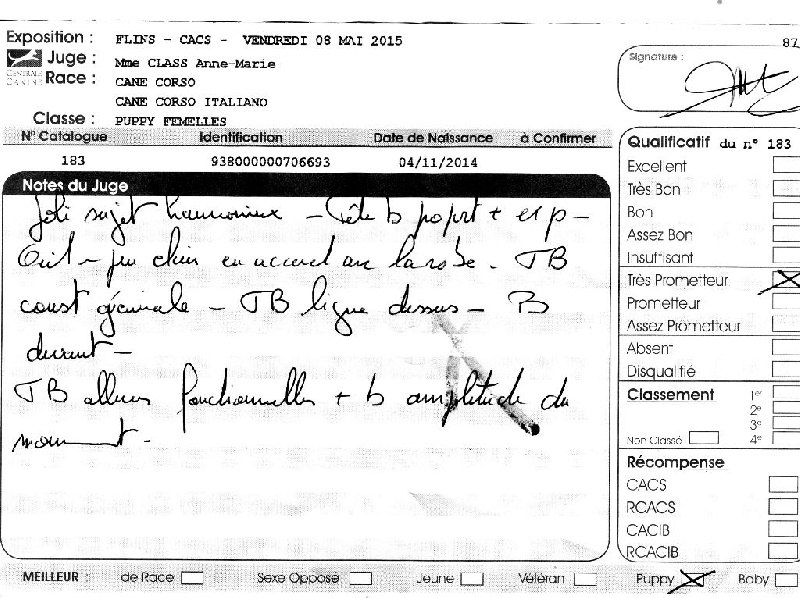 Exposition : FLINS - CACS - VENDREDI 08 MAI 2015
87
Juge : Mme CLASS Anne-Marie
CENTRALE CANINE
Race : CANE CORSO
CANE CORSO ITALIANO
Classe : PUPPY FEMELLES
Signature :
N° Catalogue Identification Date de Naissance à Confirmer
183 938000000706693 04/11/2014
Notes du Juge
Joli sujet harmonieux - Tête b
Oeil - peu clair en accord avec la robe - TB
const générale - TB ligne dessus - B
devant -
TB allures fonctionnelles + b amplitude du
mouvement -
Qualificatif du n° 183
Excellent
Très Bon
Bon
Assez Bon
Insuffisant
Très Prometteur
Prometteur
Assez Prometteur
Absent
Disqualifié
Classement 1er
2e
3e
Non Classé 4e
Récompense
CACS
RCACS
CACIB
RCACIB
MEILLEUR : de Race Sexe Opposé Jeune Vétéran Puppy Baby